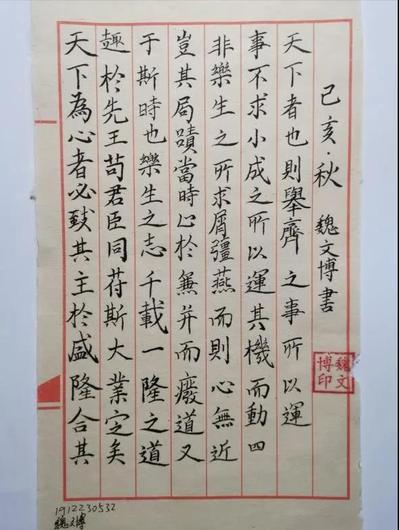 天下為心者必致其主於盛隆合其
趣於先王苟君臣同苻斯大業定矣
于斯時也樂生之志千載一隆之道
豈其局蹟當時止於兼并而廢道又
非樂生之所求屑彊燕而則心無近
事不求小成之所以運其機而動四
天下者也則舉齊之事所以運
己亥·秋 魏文博書
魏文
博印
1912230532
魏文博